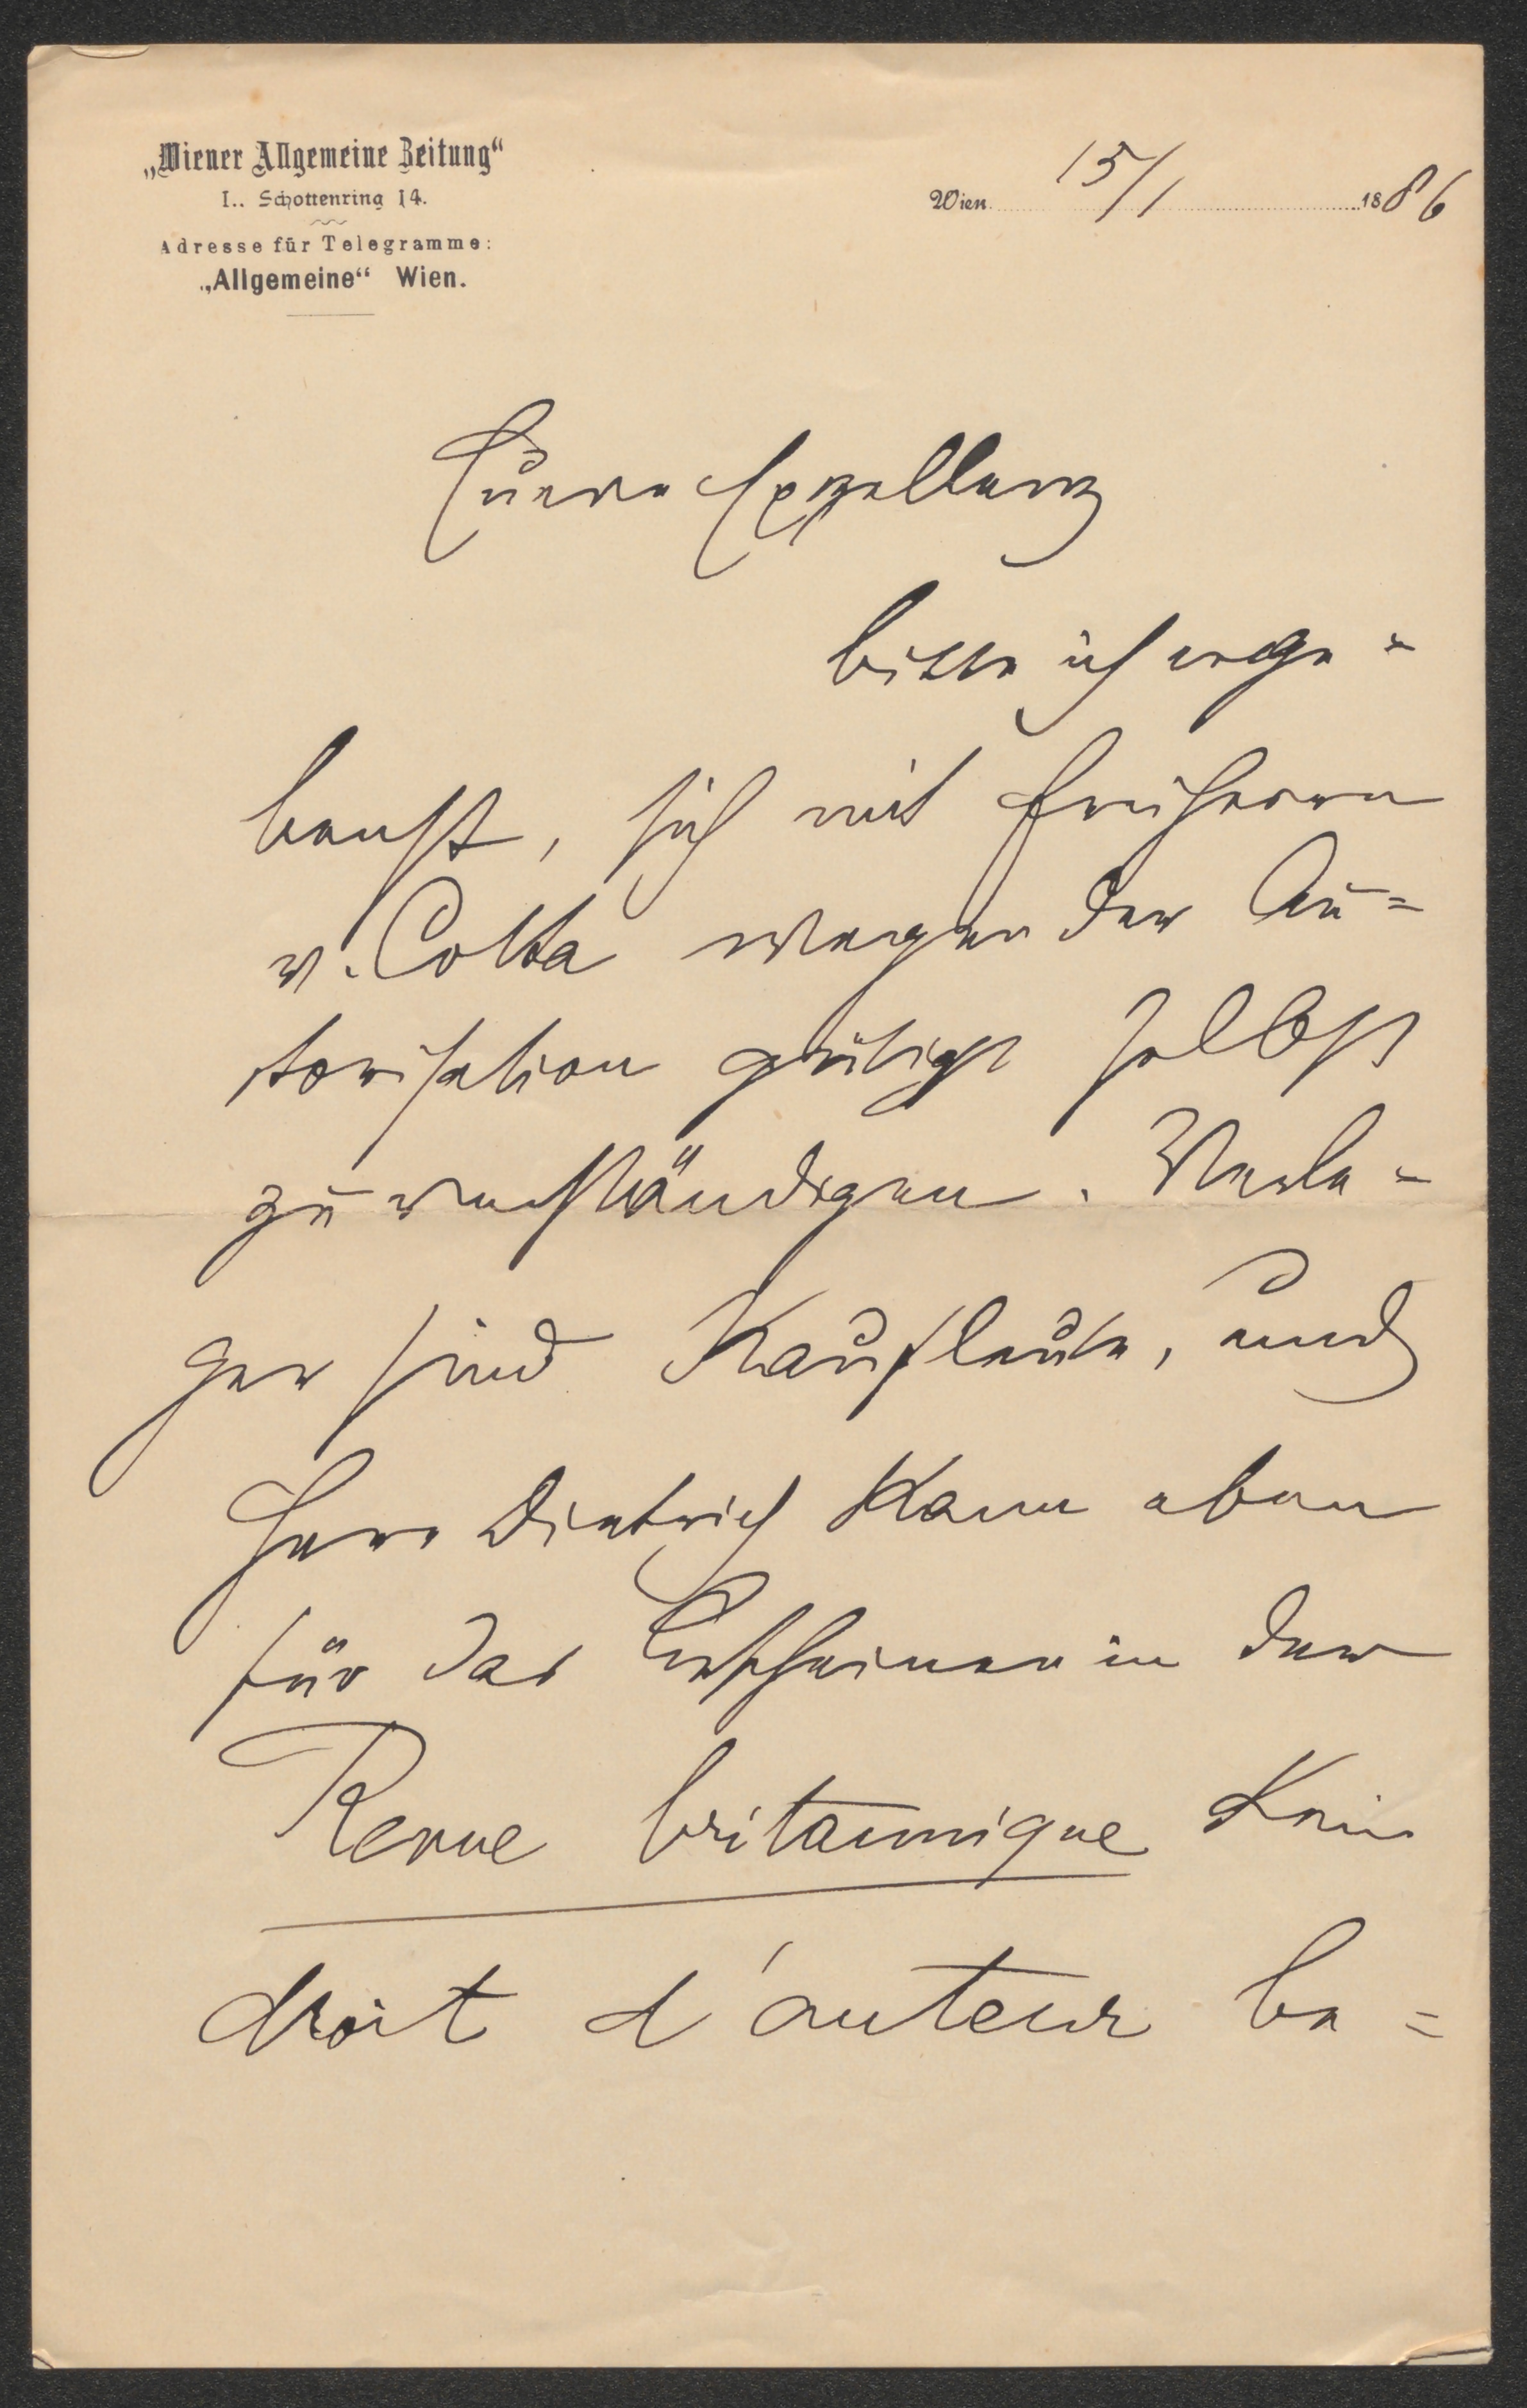 „Wiener Allgemeine Zeitung“
I.. Schottenring 14.
Adresse für Telegramme:
„Allgemeine“ Wien.
Wien 15/1 1886
Euere Exzellenz
bitte ich erge=
benst, sich mit Freiherrn
v. Cotta wegen der Au=
torisation gütigst selbst
zu verständigen. Verle=
ger sind Kaufleute, und
Herr Dietrich kann eben
für das Erscheinen in der
Revue britannique kein
droit d'auteur be=